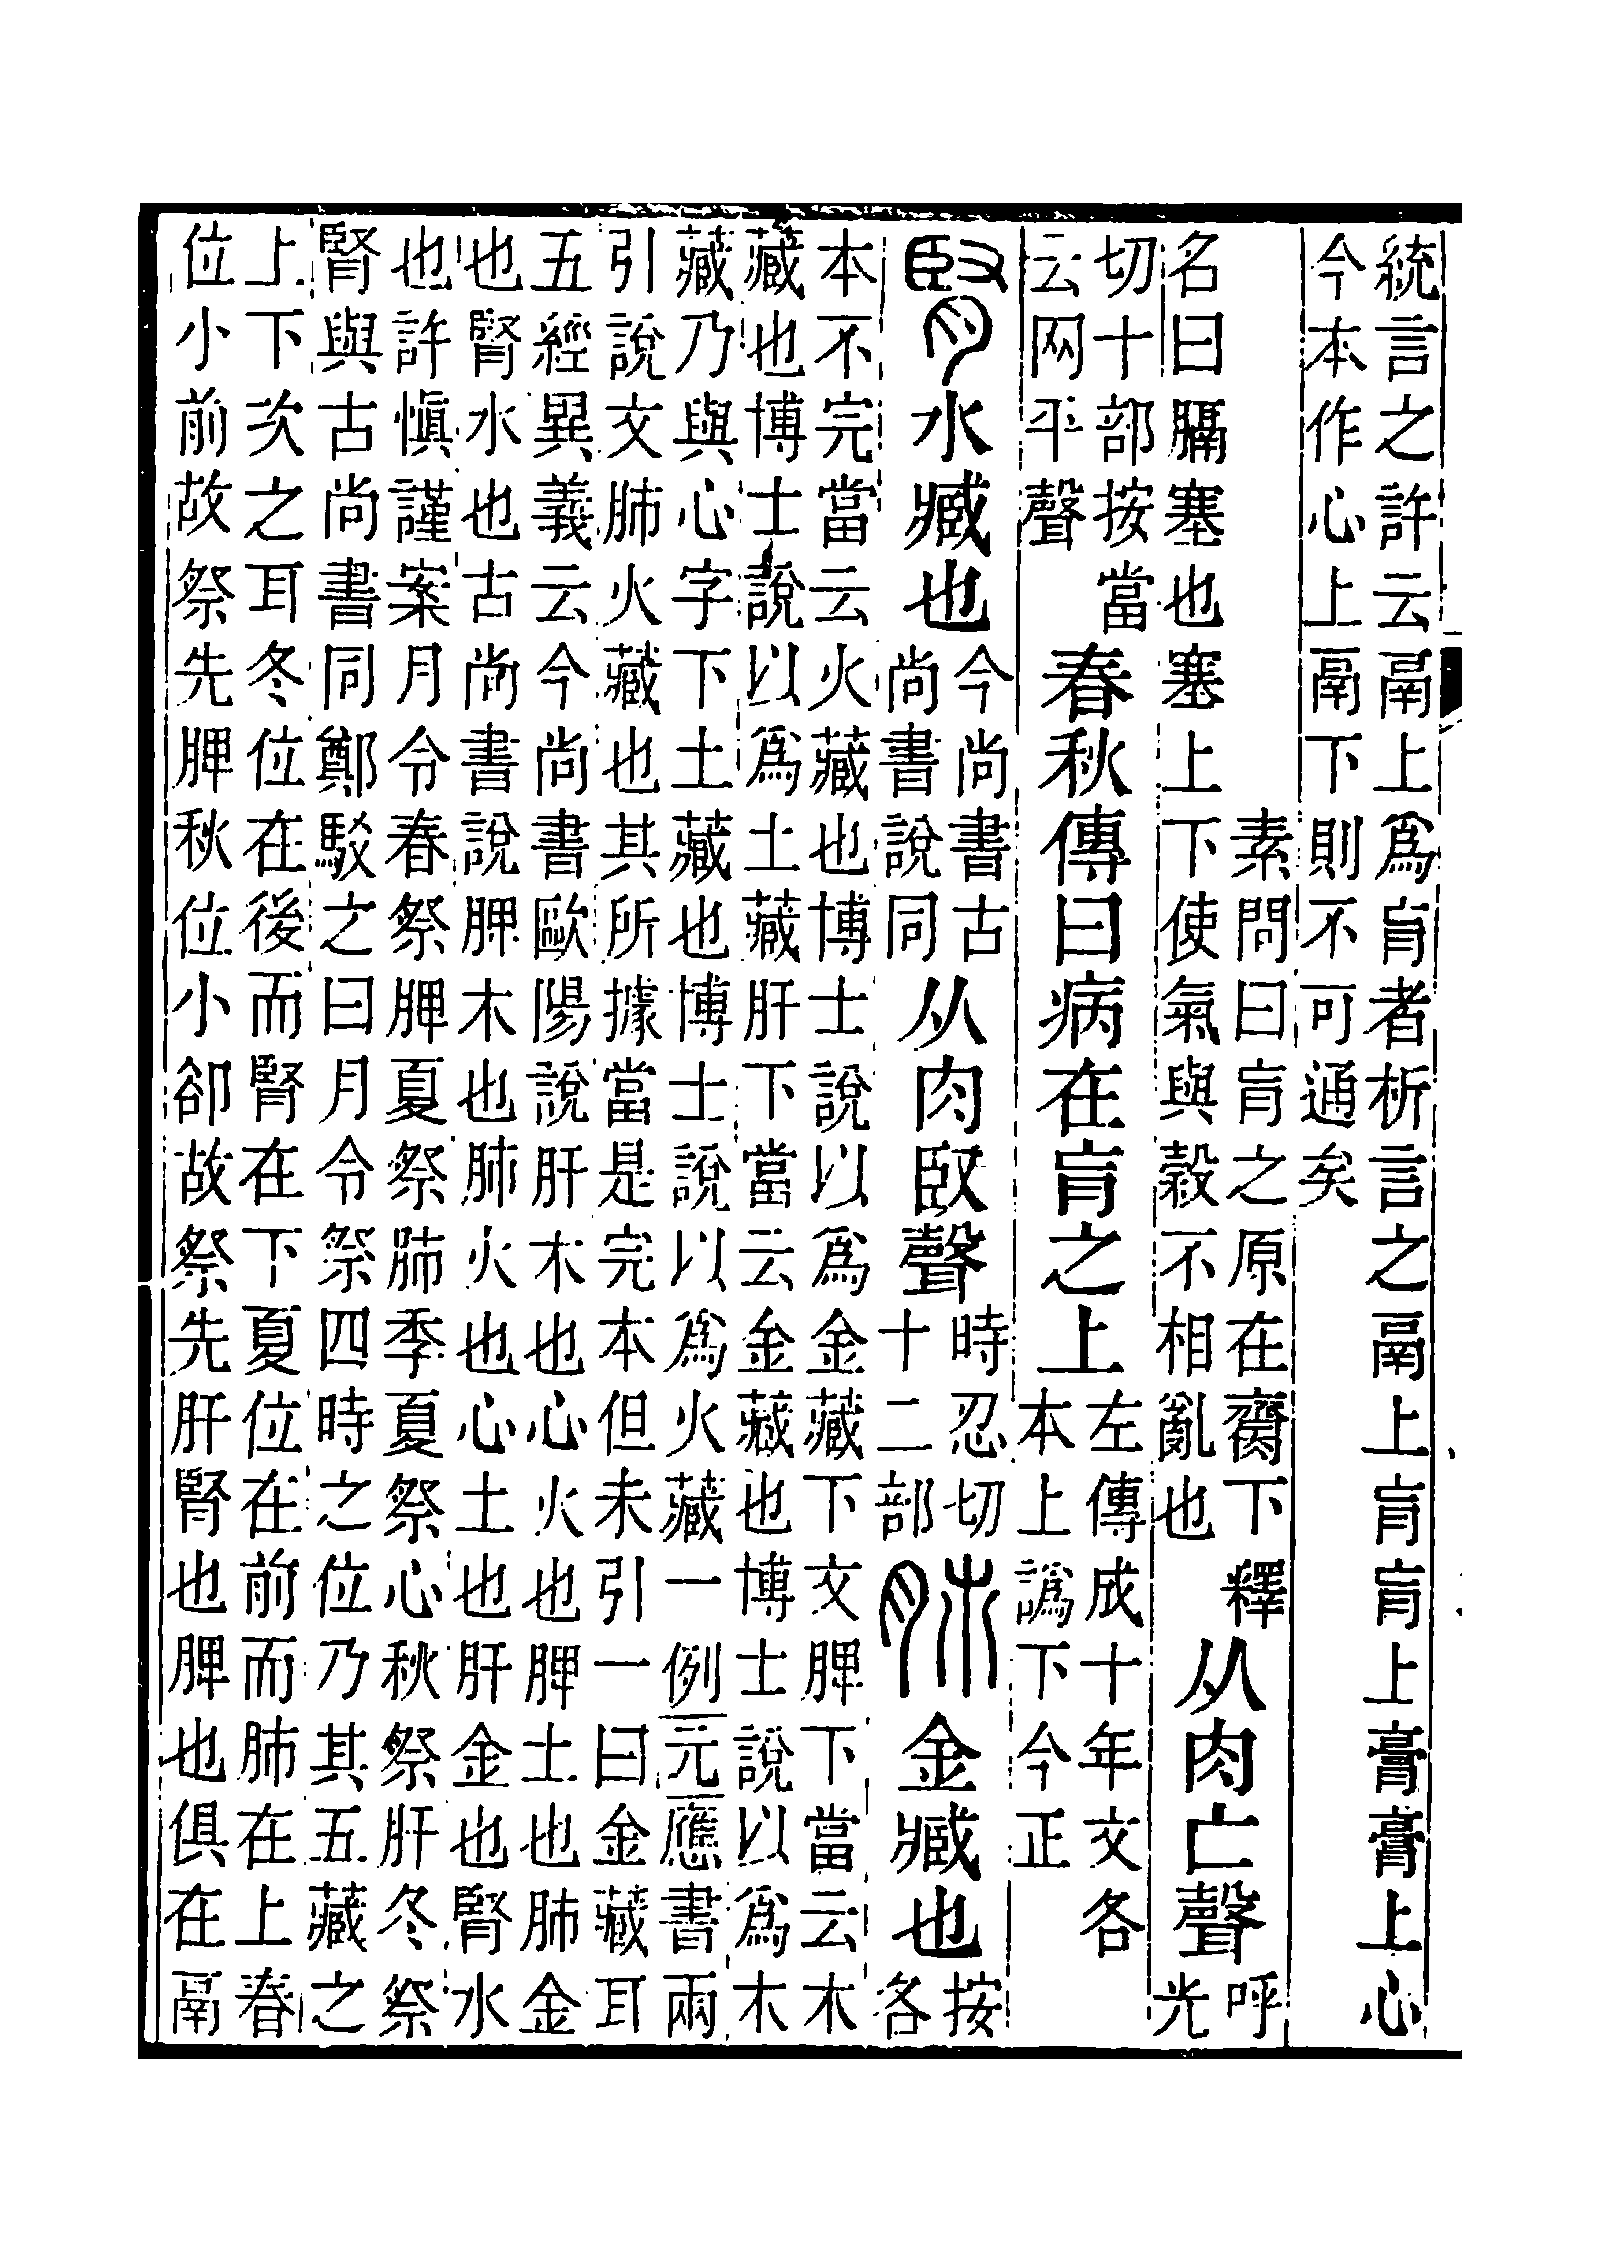 統言之許云鬲上爲肓者析言之鬲上肓肓上膏膏上心
今本作心上鬲下則不可通矣
素問曰肓之原在臍下釋
名曰膈塞也塞上下使氣與穀不相亂也
从肉亡聲
呼
光
切十部按當
云网平聲
春秋傳曰病在肓之上
左傳成十年文各
本上譌下今正
腎水臧也
今尚書古
尚書說同
从肉臤聲
時忍切
十二部
肺金臧也
按
各
本不完當云火藏也博士說以爲金藏下文脾下當云木
藏也博士說以爲土藏肝下當云金藏也博士說以爲木
藏乃與心字下土藏也博士說以爲火藏一例元應書兩
引說文肺火藏也其所據當是完本但未引一曰金藏耳
五經異義云今尚書歐陽說肝木也心火也脾土也肺金
也腎水也古尚書說脾木也肺火也心土也肝金也腎水
也許慎謹案月令春祭脾夏祭肺季夏祭心秋祭肝冬祭
腎與古尚書同鄭駁之曰月令祭四時之位乃其五藏之
上下次之耳冬位在後而腎在下夏位在前而肺在上春
位小前故祭先脾秋位小卻故祭先肝腎也脾也俱在鬲